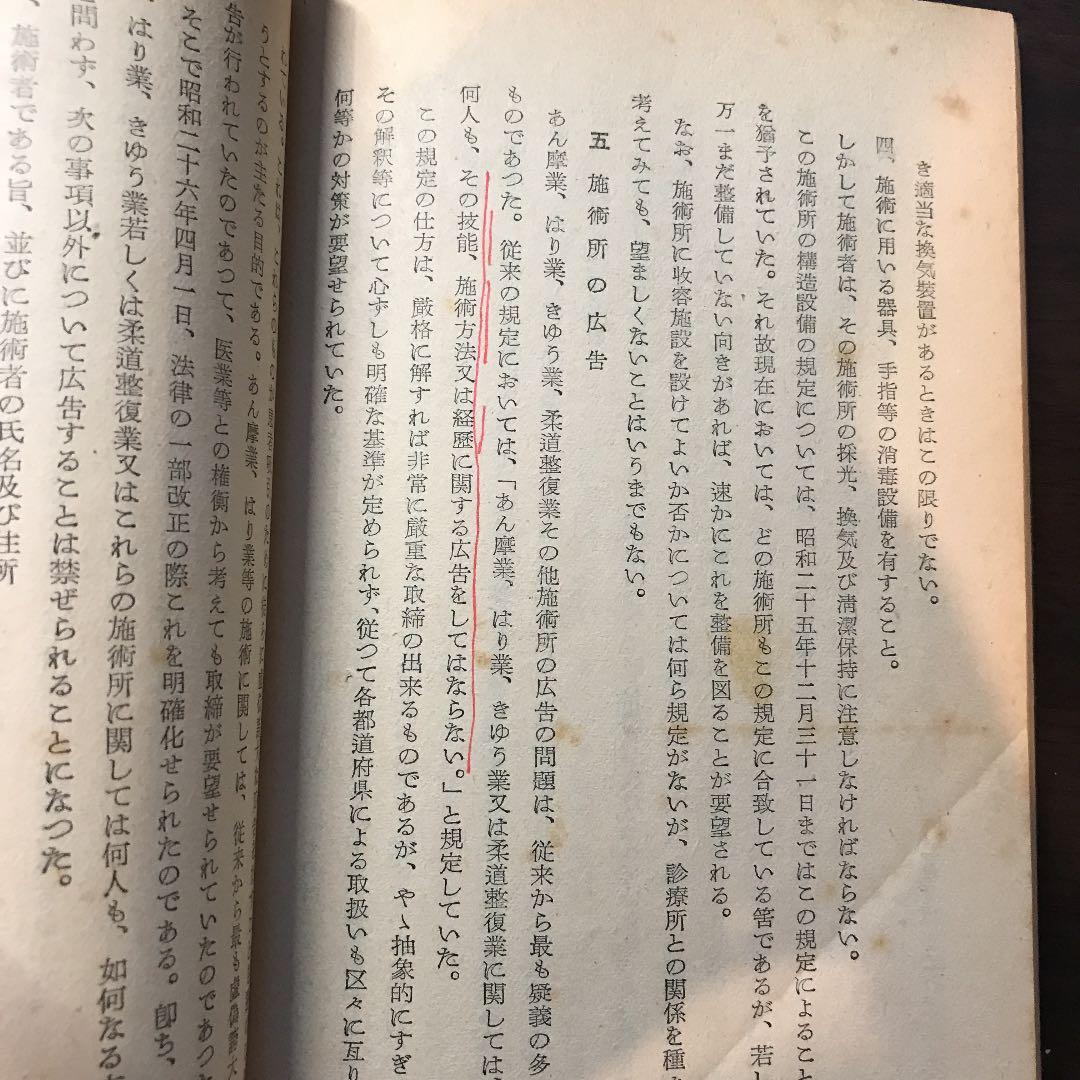 き適当な換気装置があるときはこの限りでない。
四、施術に用いる器具、手指等の消毒設備を有すること。
しかして施術者は、その施術所の採光、換気及び清潔保持に注意しなければならない。
この施術所の構造設備の規定については、昭和二十五年十二月三十一日まではこの規定によること
を猶予されていた。それ故現在においては、どの施術所もこの規定に合致している筈であるが、若し
万一まだ整備していない向きがあれば、速かにこれを整備を図ることが要望される。
なお、施術所に収容施設を設けてよいか否かについては何ら規定がないが、診療所との関係を種
考えてみても、望ましくないことはいうまでもない。
五 施術所の広告
あん摩業、はり業、きゆう業、柔道整復業その他施術所の広告の問題は、従来から最も疑義の多
ものであつた。従来の規定においては、「あん摩業、はり業、きゆう業又は柔道整復業に関しては
何人も、その技能、施術方法又は経歴に関する広告をしてはならない。」と規定していた。
この規定の仕方は、厳格に解すれば非常に厳重な取締の出来るものであるが、やゝ抽象的にすぎ
その解釈等について心ずしも明確な基準が定められず、従つて各都道府県による取扱いも区々に亙り
何等かの対策が要望せられていた。
うとするのが主たる目的である。あん摩業、はり業等の施術に関しては、従来から最も
告が行われていたのであつて、医業等との権衡から考えても取締が要望せられていたのであつ
そこで昭和二十六年四月一日、法律の一部改正の際これを明確化せられたのである。即ち、
はり業、きゆう業若しくは柔道整復業又はこれらの施術所に関しては何人も、如何なる
問わず、次の事項以外について広告することは禁ぜられることになつた。
、施術者である旨、並びに施術者の氏名及び住所